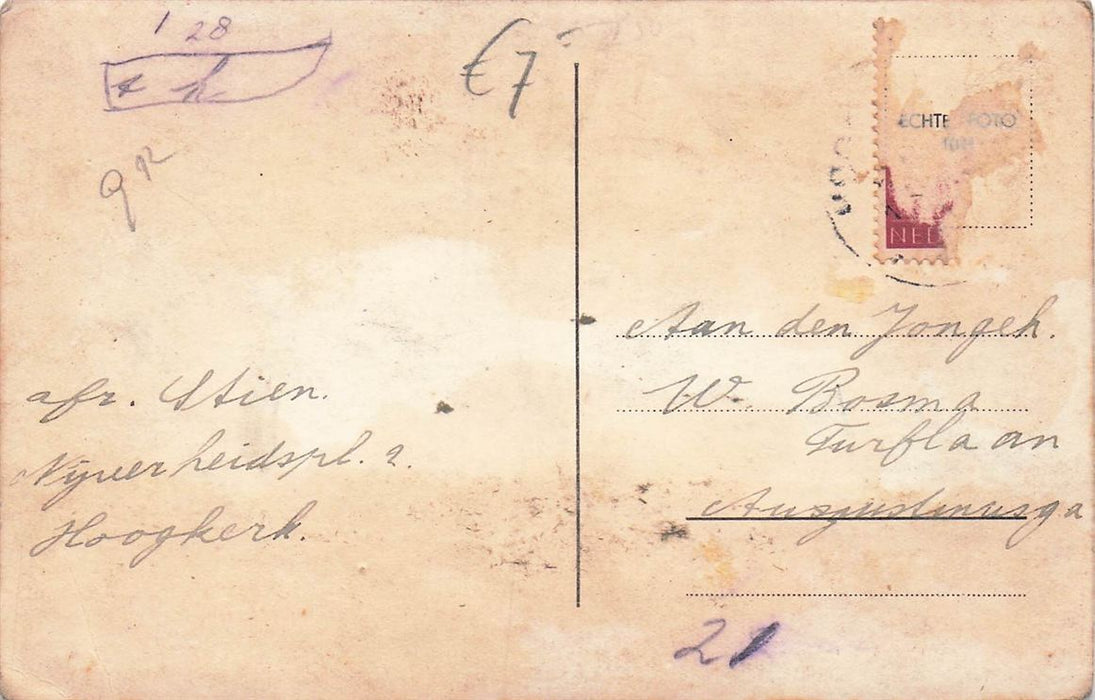 1 28
€7
ECHTE FOTO
NED
afz. Stien.
Nijverheidspl. 2.
Hoogkerk.
Aan den Jongeh.
W. Bosma
Turflaan
Augustinusga
21